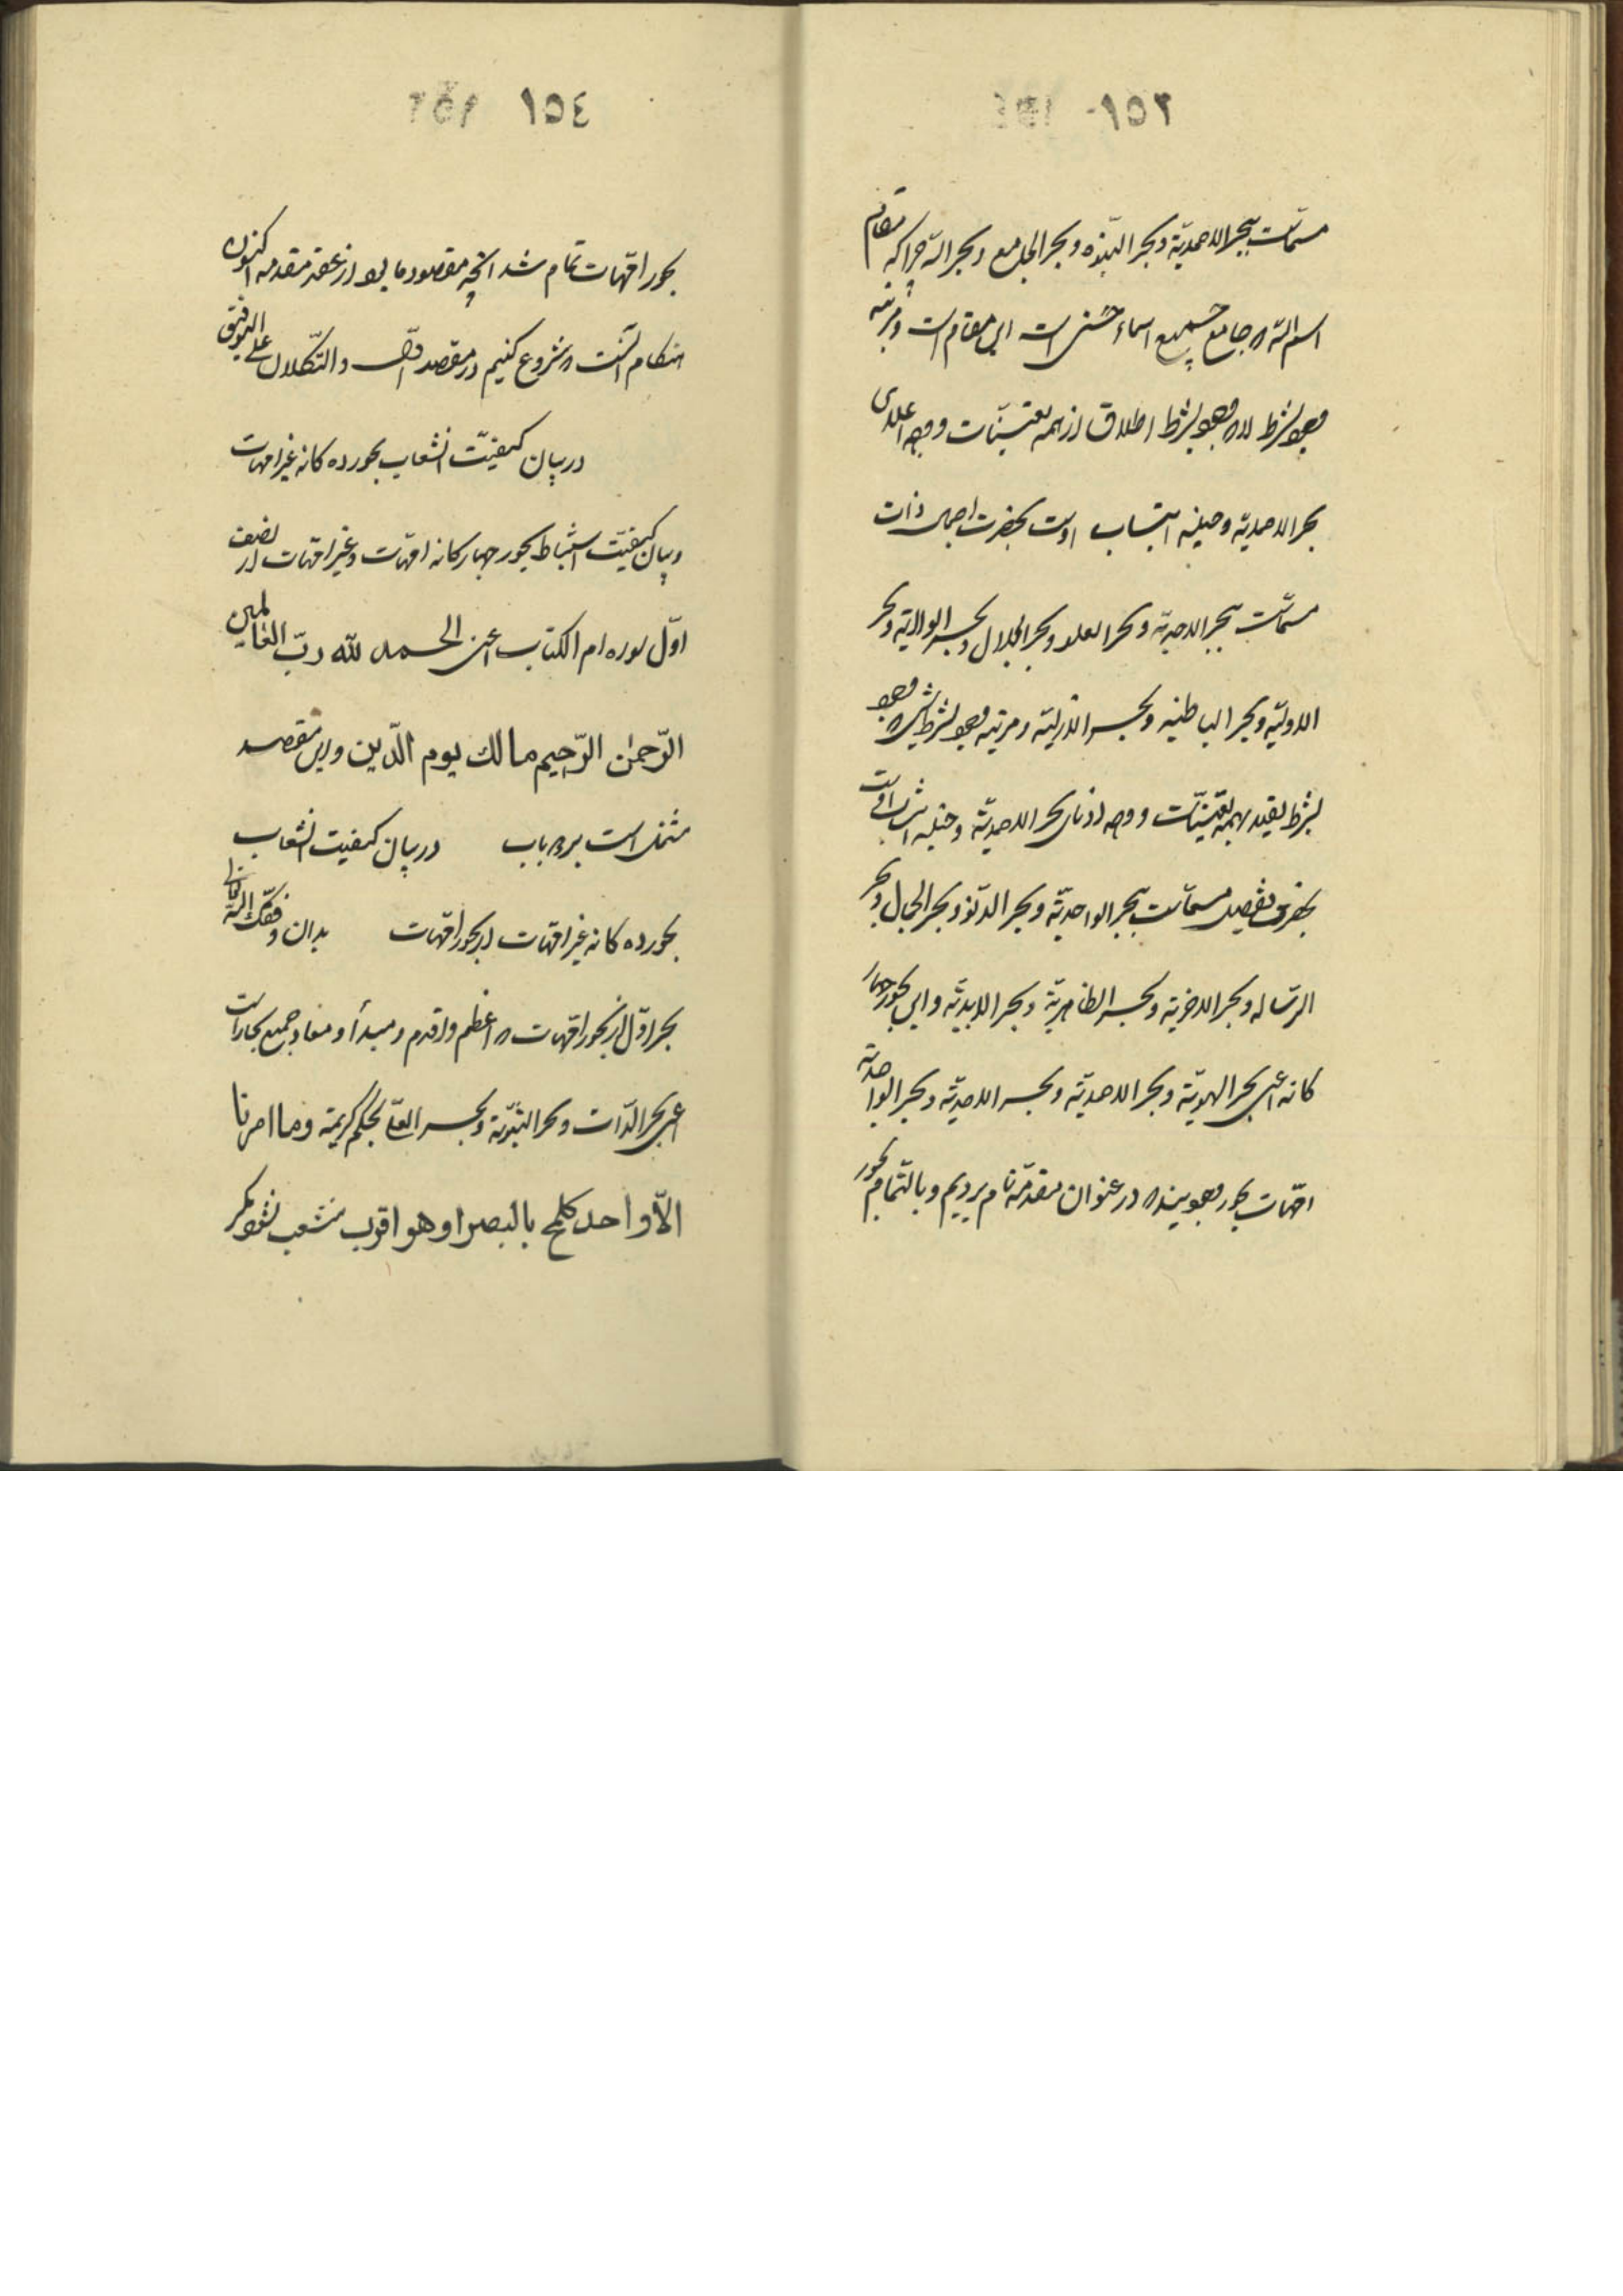 ١٥٣
مسمّاست ببحر الاحمدیّة و بحر النبوّه و بحر الجامع و بحر اللّه چرا که مقام
اسم اللّه که جامع جمیع اسماء حسنی است این مقام است و مرتبه
وجود بشرط لا که وجود بشرط اطلاق از همه تعیّنات و وجه اعلای
بحر الاحمدیّه و حیثیه انتساب اوست بحضرت اجمال ذات
مسمّاست ببحر الاحدیّه و بحر العلو و بحر الجلال و بحر الولایّه و بحر
الاولیّه و بحر الباطنیه و بحر الازلیّه و مرتبه وجود بشرط شیء که وجود
بشرط تقید بهمه تعیّنات و وجه ادنای بحر الاحمدیّه و حیثیه انتساب اوست
بحضرت تفصیل مسمّاست ببحر الواحدیّه و بحر الدّنو و بحر الجمال و بحر
الرّساله و بحر الاخریّه و بحر الظاهریّة و بحر الابدیّه و این بحور چهار
کانه اعنی بحر الهویّة و بحر الاحمدیّه و بحر الاحدیّه و بحر الواحدیّه
امّهات بحور وجوبیند که در عنوان مقدّمه نام بردیم و بالتّمام بحور
١٥٤
بحور امّهات تمام شد انچه مقصود ما بود از عقد مقدمه اکنون
هنکام آنست که شروع کنیم در مقصد اوّل و التّکلان علی التوفیق
در بیان کیفیّت انشعاب بحور ده کانه غیر امهات
و بیان کیفیّت استنباط بحور چهار کانه امّهات و غیر امّهات از نصف
اوّل سوره ام الکتاب اعنی الحمد للّه ربّ العالمین
الرّحمٰن الرّحیم مالک یوم الدّین و این مقصد
مشتمل است بر دو باب در بیان کیفیت انشعاب
بحور ده کانه غیر امّهات از بحور امّهات بدان وفّقک اللّه تعالی
بحر اوّل از بحور امّهات که اعظم و اقدم و مبدأ و معاد جمیع بحار است
اعنی بحر الذّات و بحر الهویّة و بحر العمّا بحکم کریمة وما امرنا
الّا واحد کلمح بالبصر او هو اقرب منشعب نشود مکر